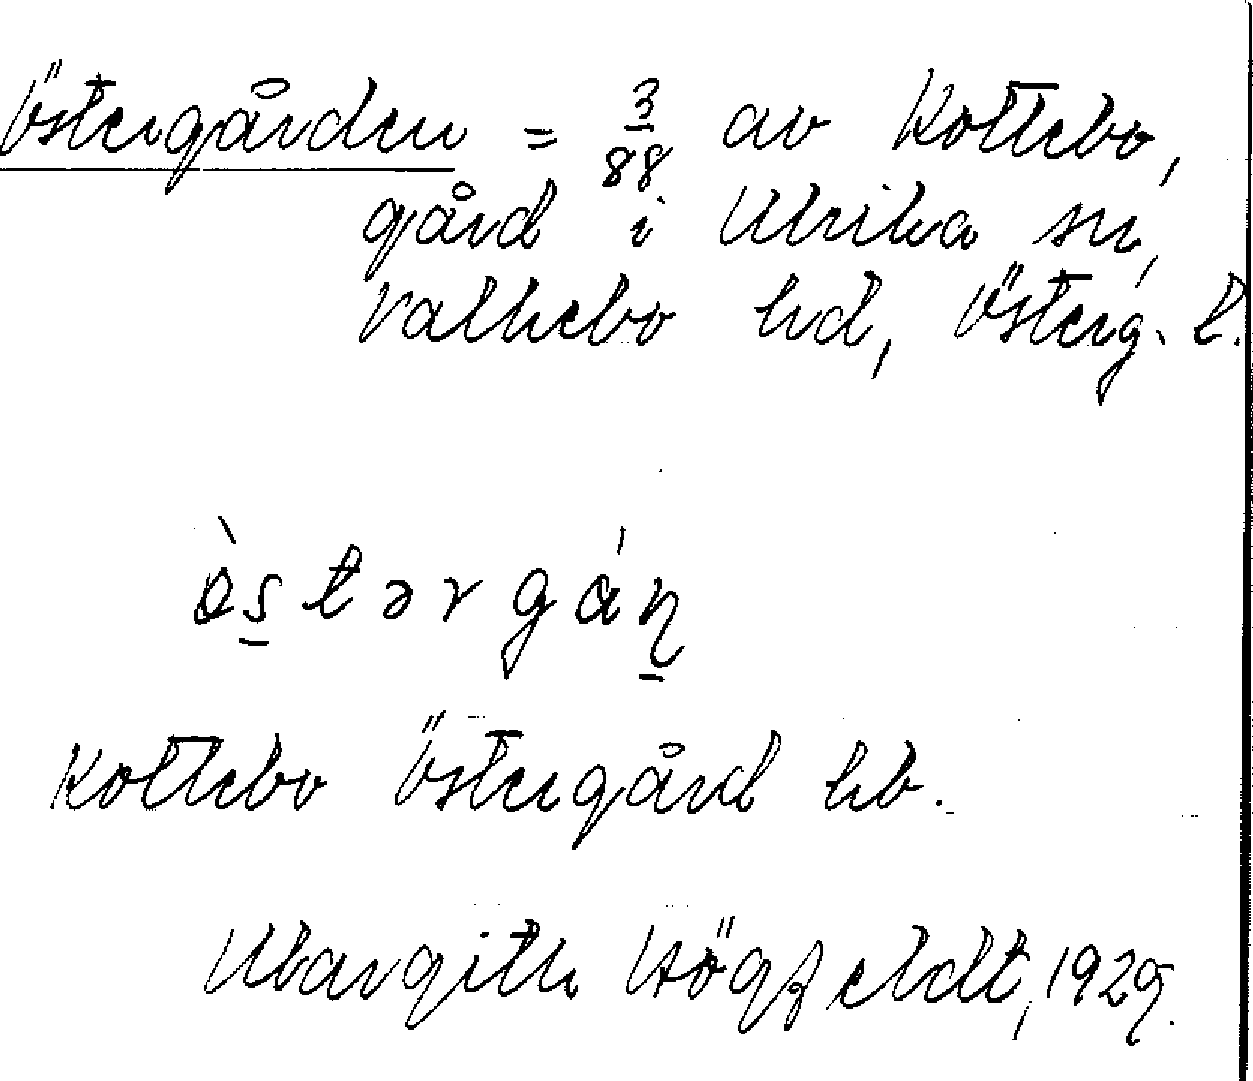 Östergården = 3/88 av Kottebo,
gård i Ulrika sn,
Valkebo hd, Österg. l.
ɵ̀s̠tərgán̠
Kottebo Östergård hb.
Margith Högfeldt, 1929.